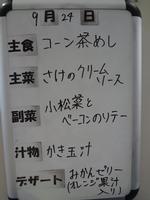 9月24日
主食 コーン茶めし
主菜 さけのクリームソース
副菜 小松菜とベーコンのソテー
汁物 かき玉汁
デザート みかんゼリー
(オレンジ果汁入り)